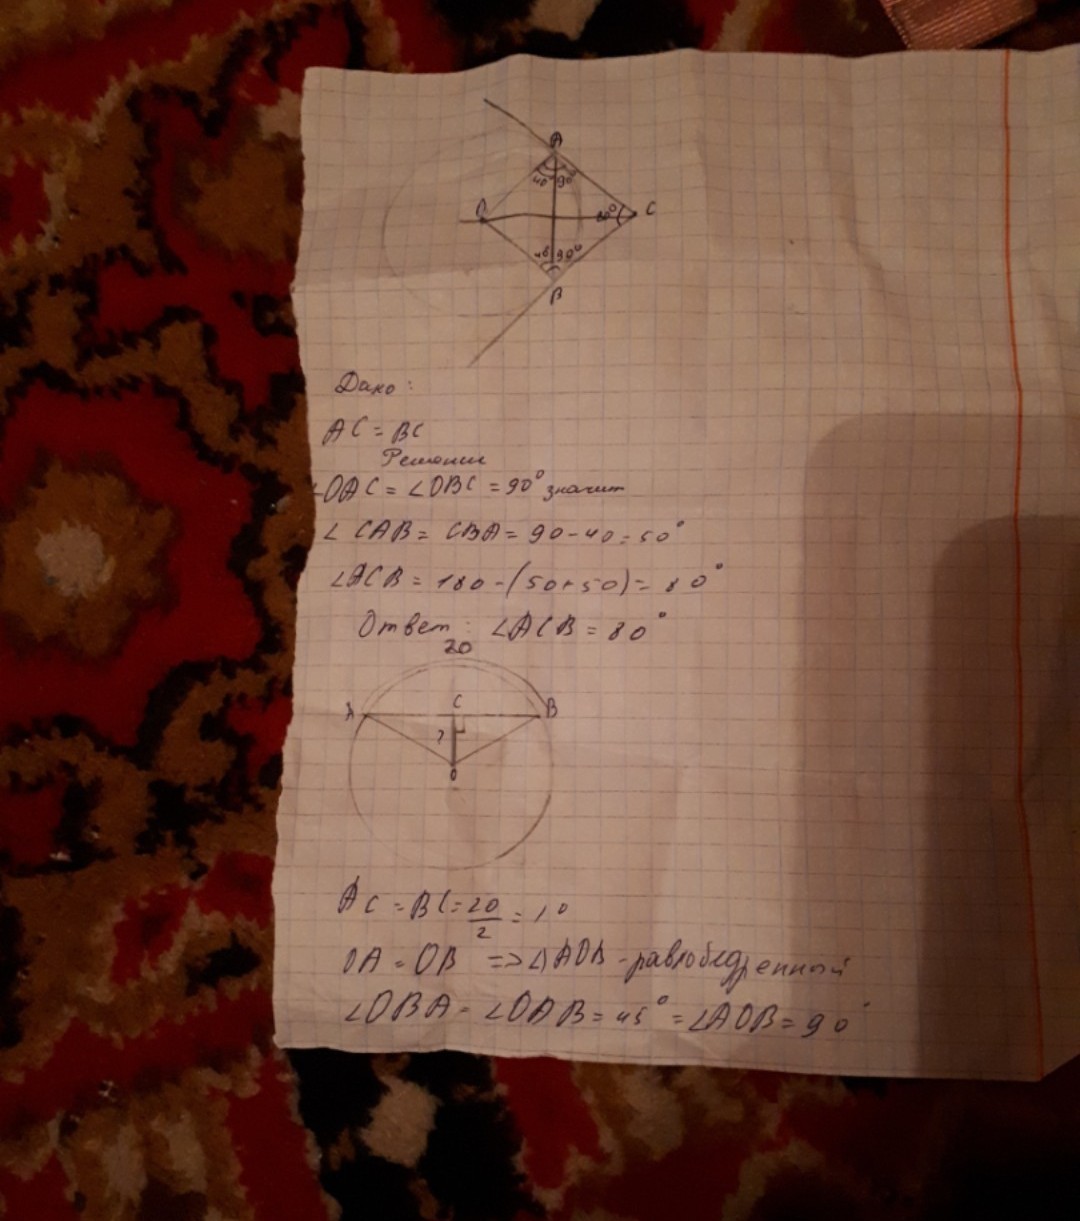 A
40° 90°
O 80° C
40 90°
B
Дано:
AC = BC
Решение
∠OAC = ∠OBC = 90° значит
∠CAB = CBA = 90 - 40 = 50°
∠ACB = 180 - (50 + 50) = 80°
Ответ: ∠ACB = 80°
20
A C B
?
O
AC = BC = 20/2 = 10
OA = OB => ΔAOB - равнобедренный
∠OBA = ∠OAB = 45° = ∠AOB = 90°